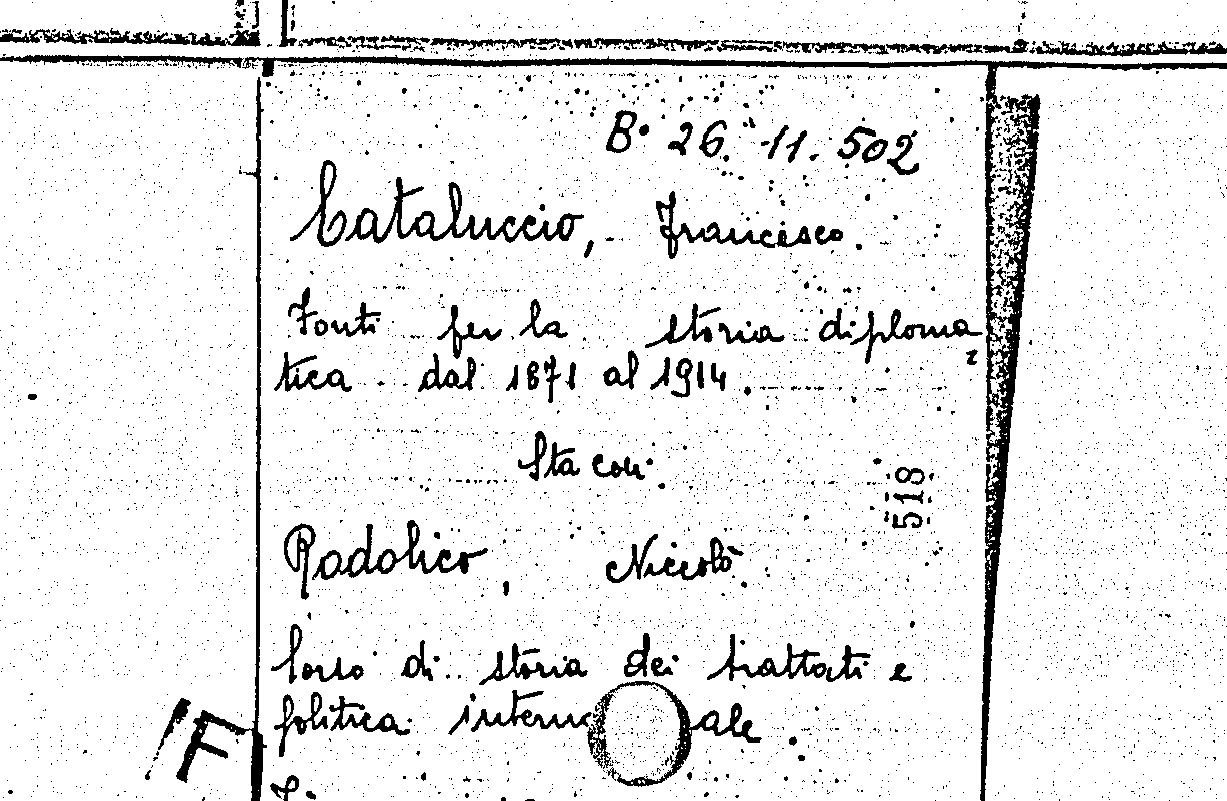 B. 26. 11. 502
Cataluccio, Francesco.
Fonti per la storia diploma
tica dal 1871 al 1914.
Sta con:
518
Rodolico, Niccolò.
Corso di storia dei trattati e
politica intern ale.
F